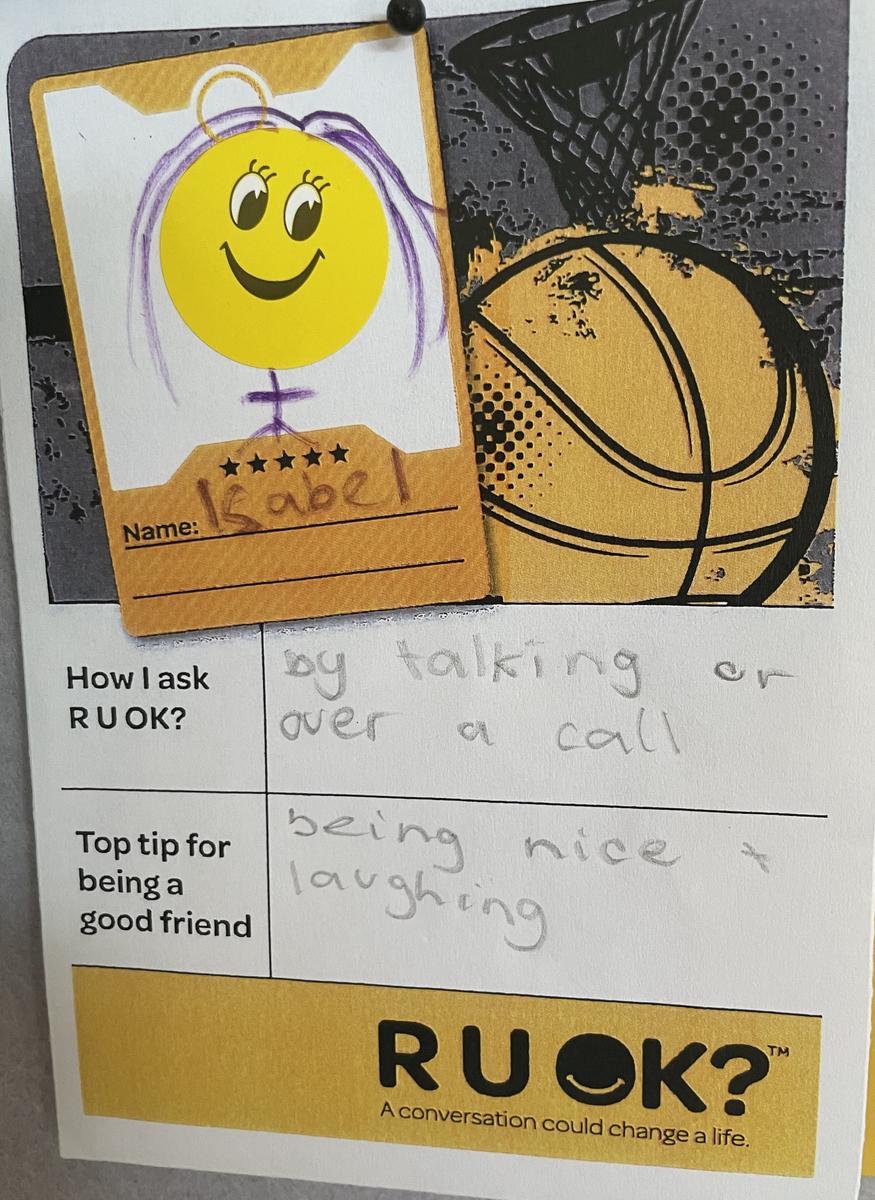 Name: Isabel
How I ask
R U OK?
by talking or
over a call
Top tip for
being a
good friend
being nice +
laughing
R U OK?™
A conversation could change a life.